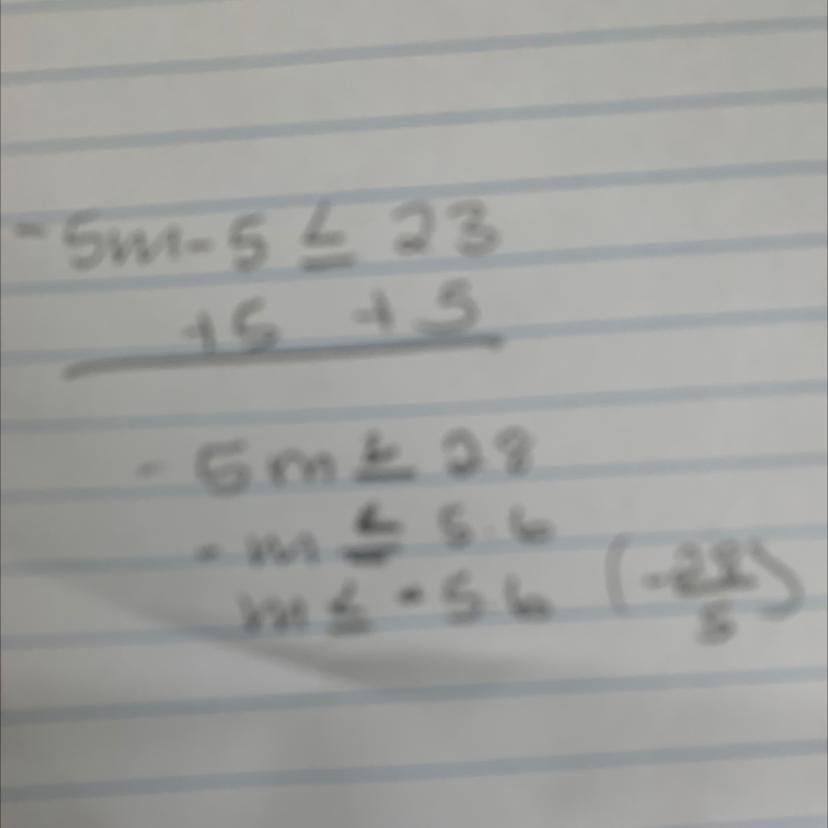 -5m-5 ≤ 23
+5 +5
-5m ≤ 28
-m ≤ 5.6
m ≤ -5.6 (-28/5)